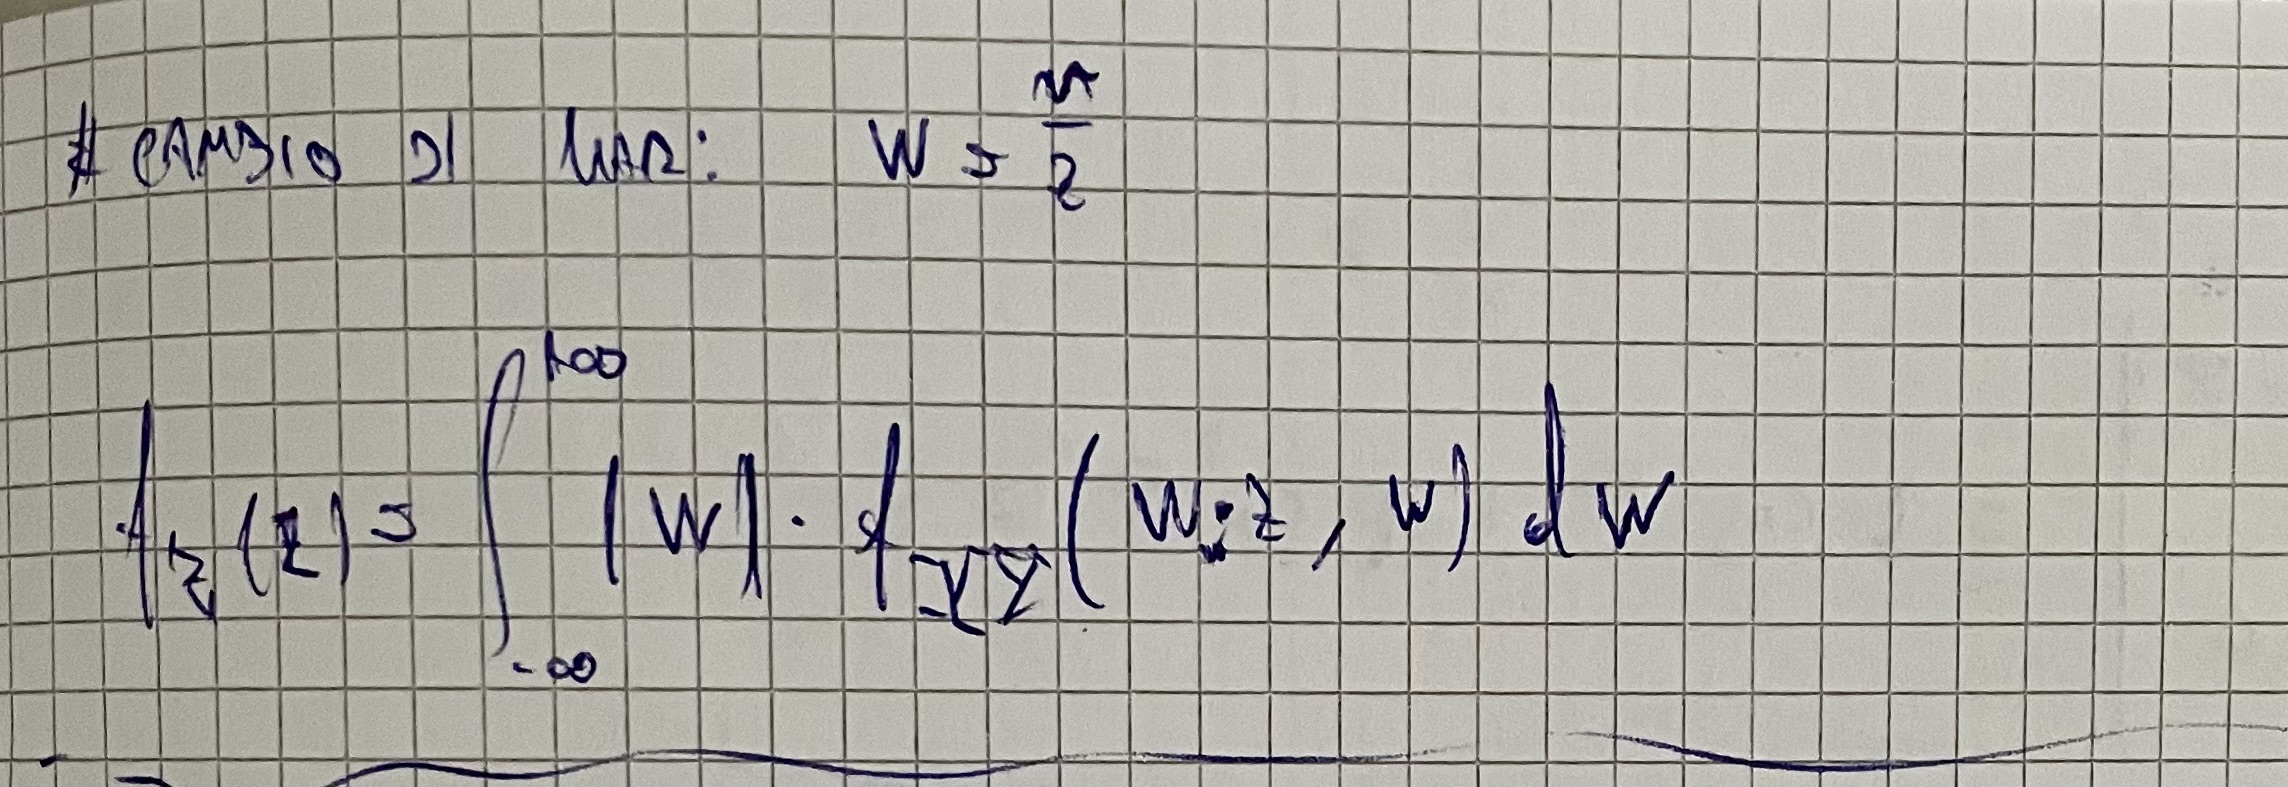 # CAMBIO DI VAR: W = \frac{x}{z}
f_Z(z) = \int_{-∞}^{+∞} |W| · f_{XY}(W·z, W) dW